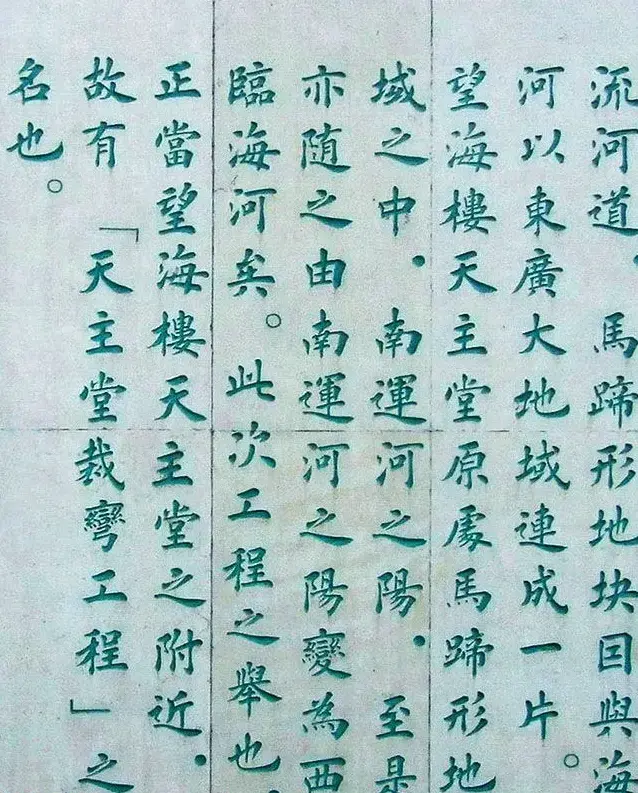 流河道，馬蹄形地块囙與海
河以東廣大地域連成一片。
望海樓天主堂原處馬蹄形地
域之中，南運河之陽，至是
亦随之由南運河之陽變為西
臨海河矣。此次工程之舉也，
正當望海樓天主堂之附近，
故有「天主堂裁彎工程」之
名也。